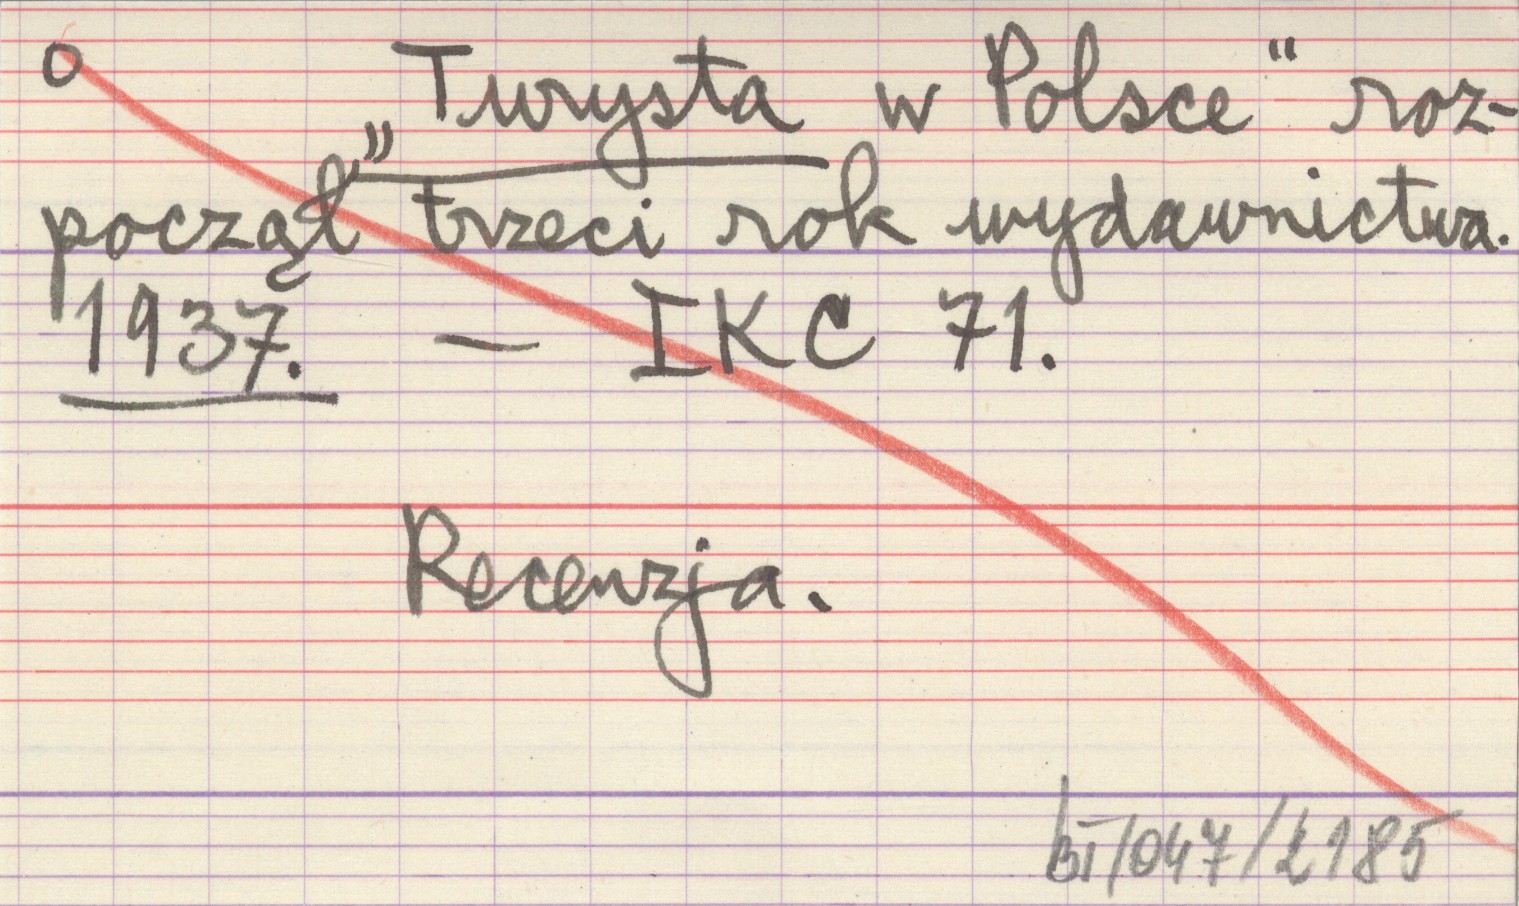 O „Turysta w Polsce“ roz-
począł trzeci rok wydawnictwa.
1937. — IKC 71.
Recenzja.
bI/047/2185